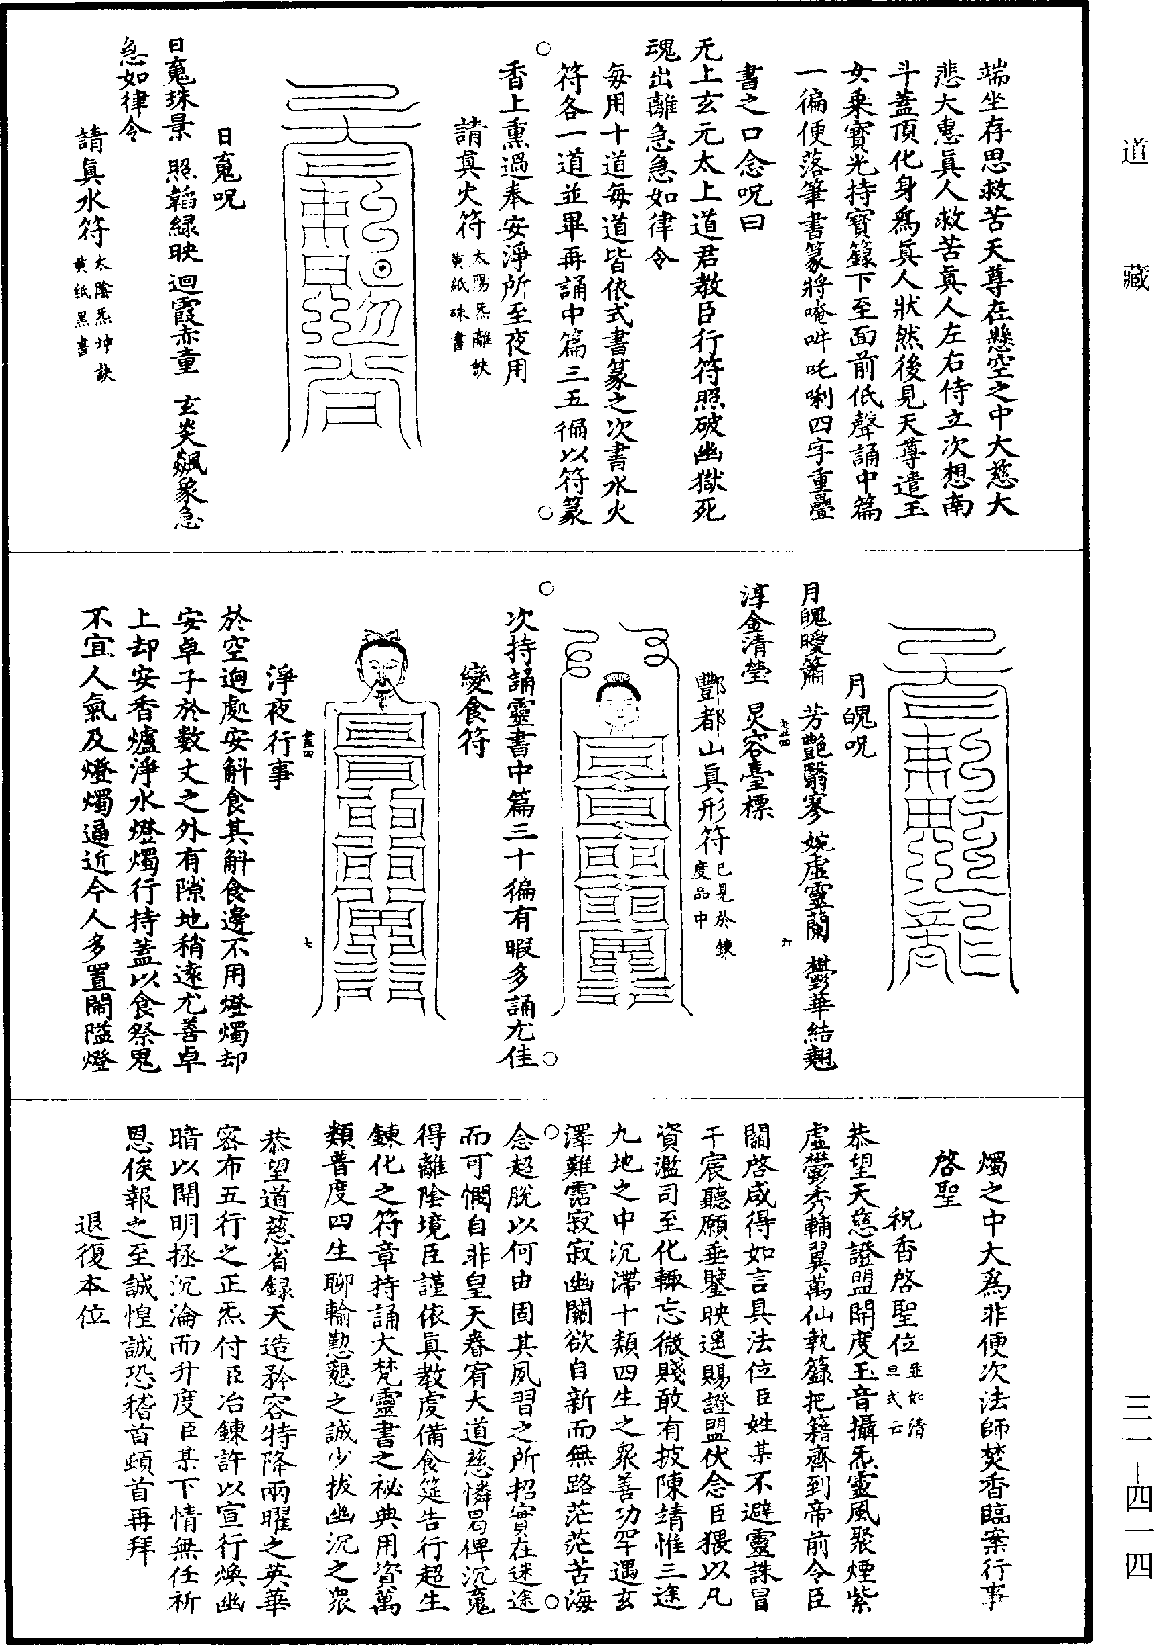 道藏
三一—四一四
端坐存思救苦天尊在懸空之中大慈大
悲大惠眞人救苦眞人左右侍立次想南
斗蓋頂化身為眞人狀然後見天尊遣玉
女乗寳光持寳籙下至面前低聲誦中篇
一徧便落筆書篆將唵吽吒唎四字重疊
書之口念呪曰
无上玄元太上道君教臣行符照破幽獄死
魂出離急急如律令
每用十道每道皆依式書篆之次書水火
符各一道並畢再誦中篇三五徧以符篆
香上熏過奉安淨所至夜用
請眞火符太陽炁離訣
黄紙硃書
日魂呪
日䰟珠景 照韜緑映 迴霞赤童 玄炎飆象急
急如律令
請眞水符太陰炁坤訣
黄紙黑書
月魄呪
月魄曖蕭 芳艷翳寥 婉虛靈蘭 鬱華結翹
淳金清瑩 炅容臺標
七五四
六
酆都山眞形符已見於錬
度品中
次持誦靈書中篇三十徧有暇多誦尤佳
變食符
七
淨夜行事
於空迥處安斛食其斛食邊不用燈燭却
安卓子於數丈之外有隙地稍遠尤善卓
上却安香爐淨水燈燭行持蓋以食祭鬼
不宜人氣及燈燭逼近今人多置鬧隘燈
燭之中大為非便次法師焚香臨案行事
啓聖
祝香啓聖位並如清
旦式云
恭望天慈證盟開度玉音攝炁靈風聚煙紫
虛鬱秀輔翼萬仙執籙把籍齊到帝前令臣
關啓咸得如言具法位臣姓某不避靈誅冒
干宸聽願垂鑒映遙賜證盟伏念臣猥以凡
資濫司至化輒忘微賤敢有披陳靖惟三途
九地之中沉滯十類四生之衆善功罕遇玄
澤難霑寂寂幽關欲自新而無路茫茫苦海
念超脫以何由固其夙習之所招實在迷途
而可憫自非皇天眷宥大道慈憐曷俾沉䰟
得離陰境臣謹依眞教虔備食筵告行超生
錬化之符章持誦大梵靈書之祕典用資萬
類普度四生聊輸懃懇之誠少拔幽沉之衆
恭望道慈省錄天造矜容特降兩曜之英華
密布五行之正炁付臣冶錬許以宣行煥幽
暗以開明拯沉淪而升度臣某下情無任祈
恩俟報之至誠惶誠恐稽首頓首再拜
退復本位